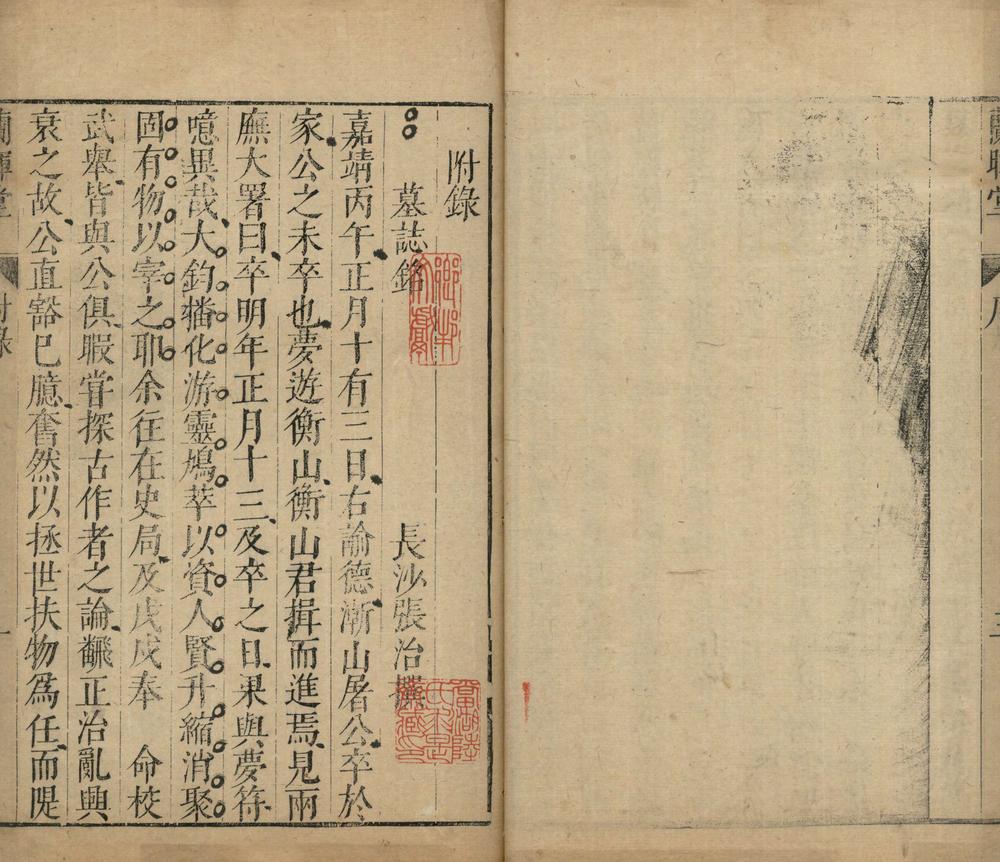 附錄
墓誌銘 長沙張治撰
嘉靖丙午正月十有三日右諭德漸山屠公卒於
家公之未卒也夢遊衡山衡山君揖而進焉見兩
廡大署曰卒明年正月十三及卒之日果與夢符
噫異哉大鈞播化游靈鳩萃以資人賢升縮消聚
固有物以宰之耶余往在史局及戊戌奉 命校
武舉皆與公俱暇甞探古作者之論覼正治亂興
衰之故公直豁巳臆奮然以拯世扶物為任而隄
蘭暉堂 附錄 一